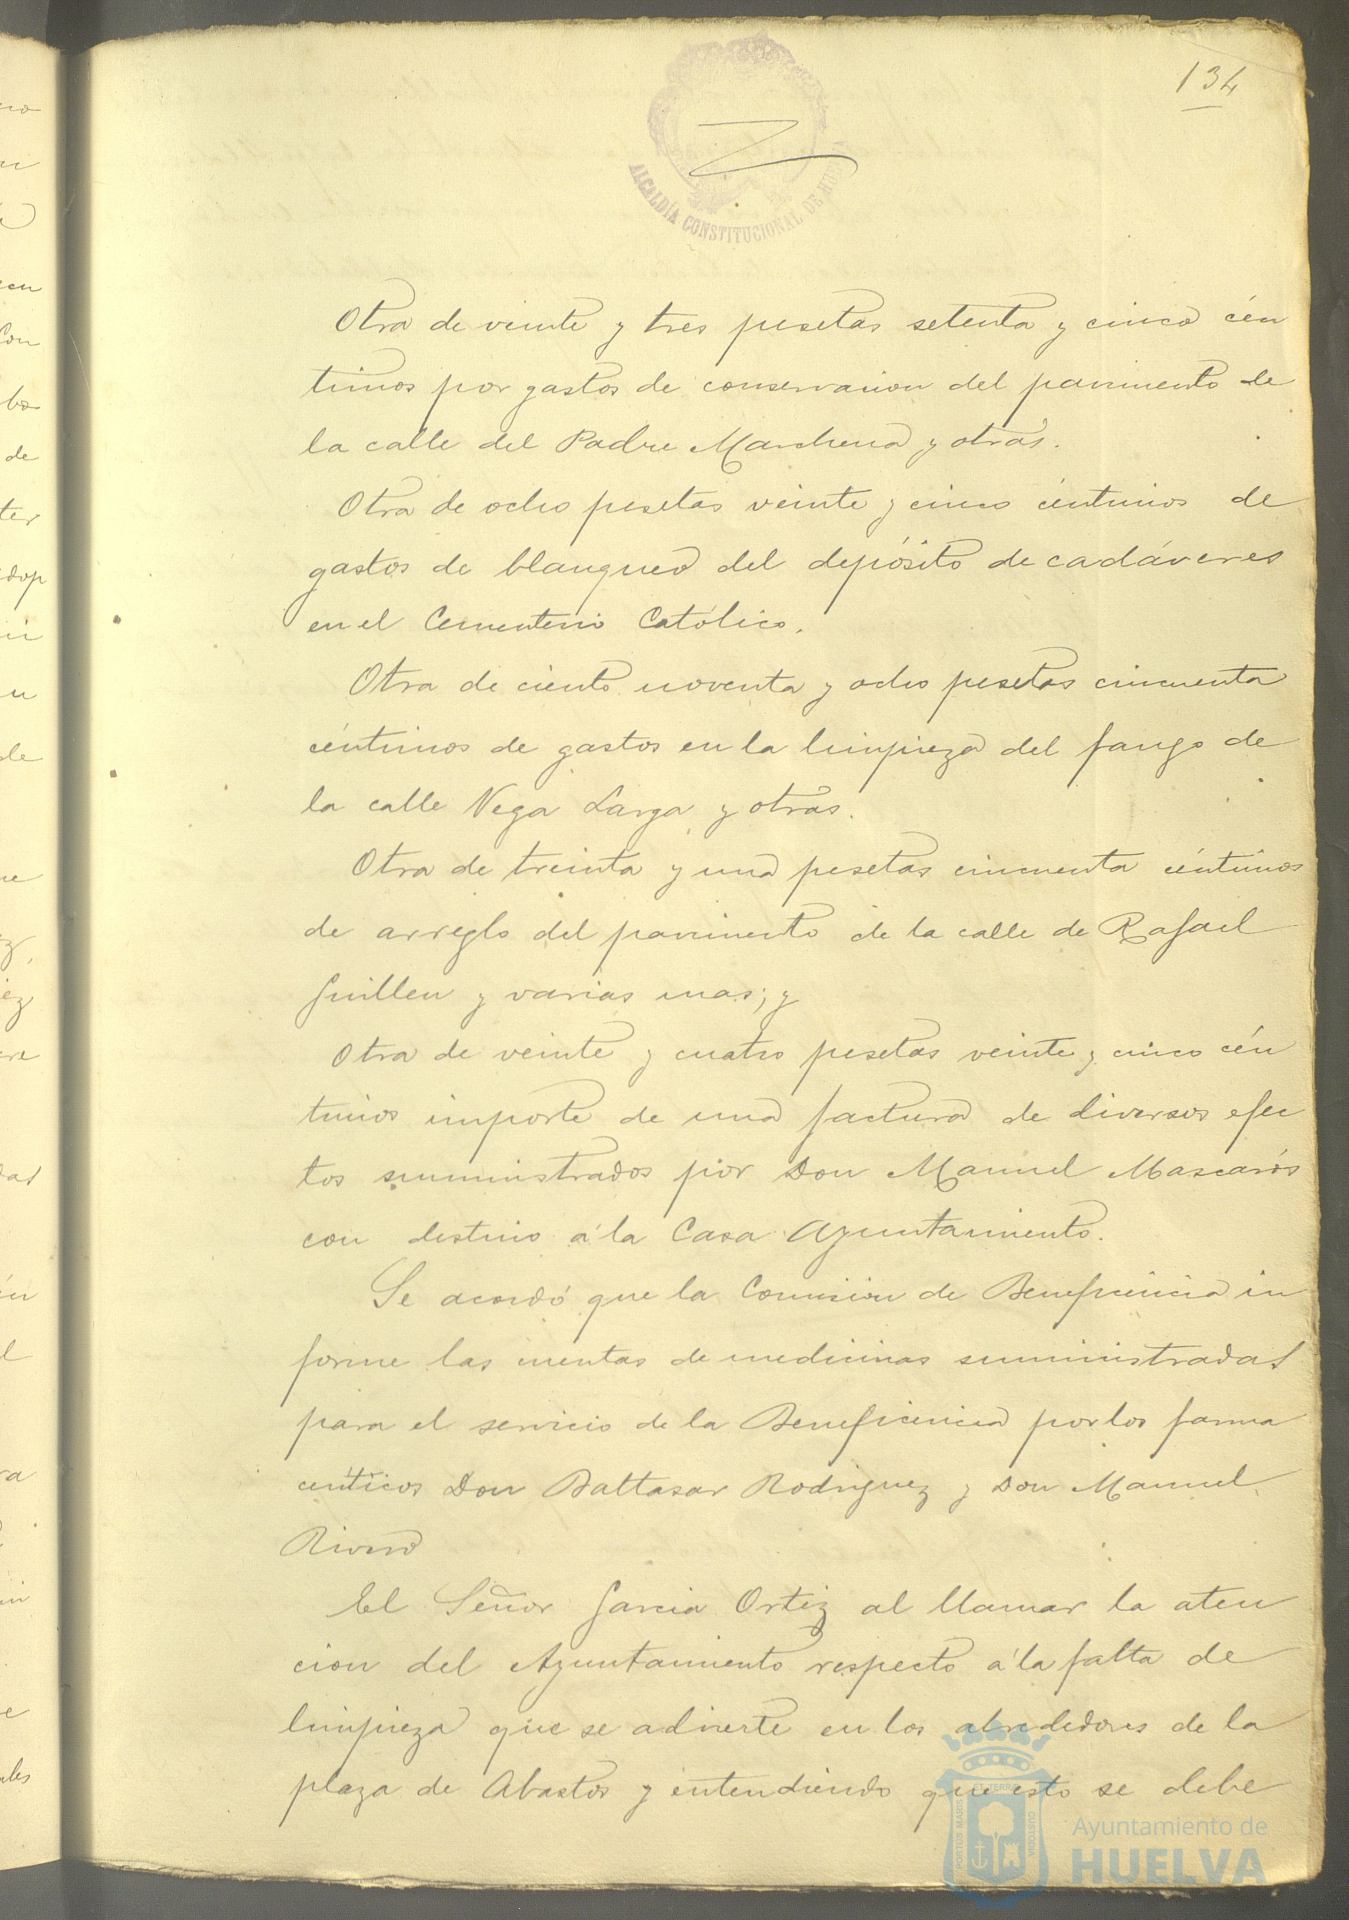 134
ALCALDÍA CONSTITUCIONAL DE HUELVA
Otra de veinte y tres pesetas setenta y cinco cén
timos por gastos de conservacion del pavimento de
la calle del Padre Marchena y otras.
Otra de ocho pesetas veinte y cinco céntimos de
gastos de blanqueo del depósito de cadáveres
en el Cementerio Católico.
Otra de ciento noventa y ocho pesetas cincuenta
céntimos de gastos en la limpieza del fango de
la calle Vega Larga y otras.
Otra de treinta y una pesetas cincuenta céntimos
de arreglo del pavimento de la calle de Rafael
Guillen y varias mas; y
Otra de veinte y cuatro pesetas veinte y cinco cén
timos importe de una factura de diversos efec
tos suministrados por Don Manuel Mascarós
con destino á la Casa Ayuntamiento.
Se acordó que la Comision de Beneficencia in
forme las cuentas de medicinas suministradas
para el servicio de la Beneficencia por los farma
ceúticos Don Baltasar Rodriguez y Don Manuel
Rivero
El Señor Garcia Ortiz al llamar la aten
cion del Ayuntamiento respecto á la falta de
limpieza que se advierte en los alrededores de la
plaza de Abastos y entendiendo que esto se debe
PORTUS MARIS ET TERRAE CUSTODIA
Ayuntamiento de
HUELVA